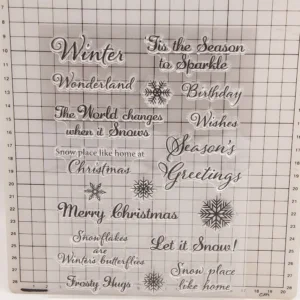 Winter
'Tis the Season
to Sparkle
Wonderland
Birthday
The World changes
when it Snows
Wishes
Snow place like home at
Christmas
Season's
Greetings
Merry Christmas
Let it Snow!
Snowflakes
are
Winter's butterflies
Snow place
like home
Frosty Hugs